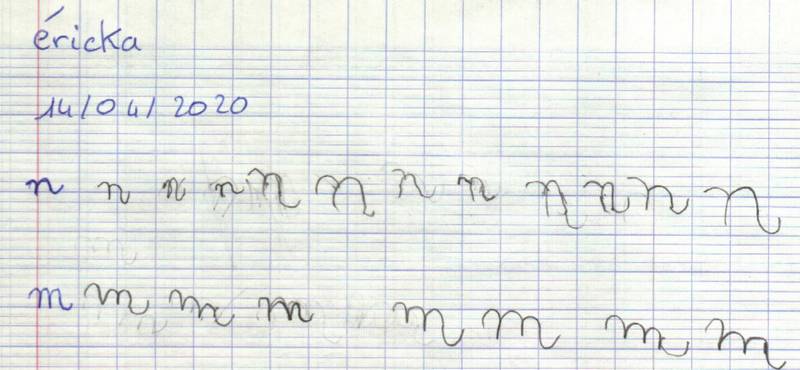 éricka
14/04/2020
n n n n n n n n n n n n
m m m m m m m m